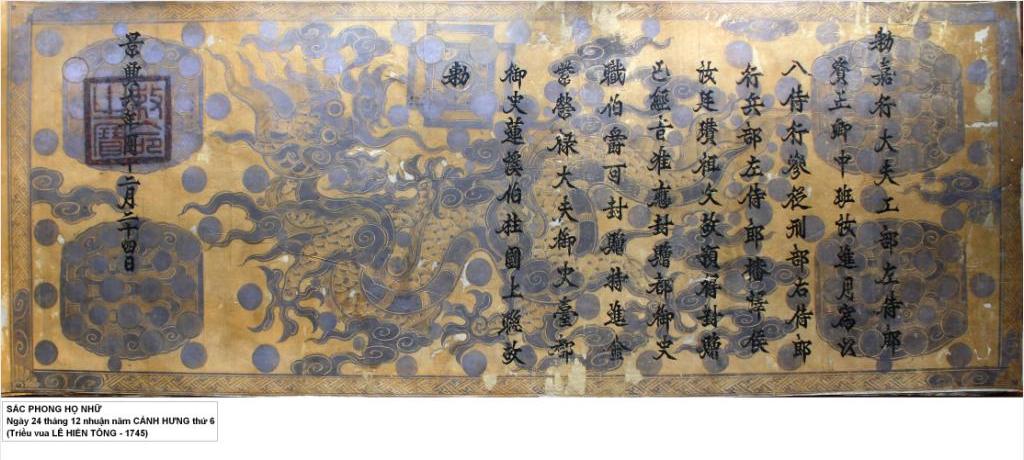 勅嘉行大夫工部左侍郎
賓正卿中班汝進用為以
入侍行參從刑部右侍郎
行兵部左侍郎澤侯
汝廷瓚祖父故預有封贈
已經旨准應封贈都御史
職伯爵可封贈特進金
紫榮祿大夫御史臺都
御史蓮溪伯柱國上聯故
勅
景興六年閏十二月二十四日
敕命之寶
SẮC PHONG HỌ NHỮ
Ngày 24 tháng 12 nhuận năm CẢNH HƯNG thứ 6
(Triều vua LÊ HIỂN TÔNG - 1745)